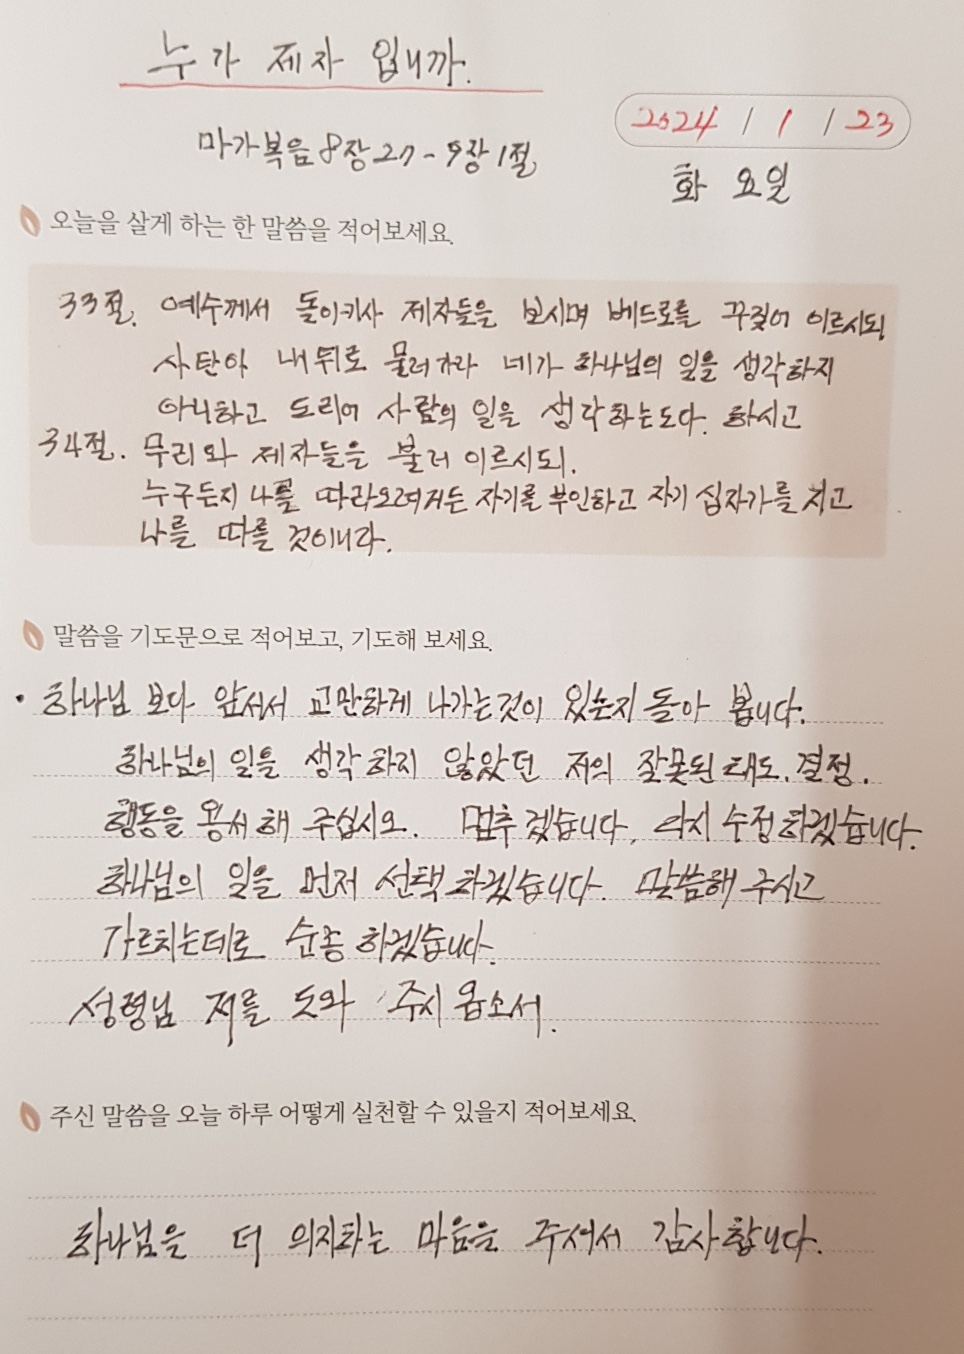 누가 제자 입니까.
2024 / 1 / 23
마가복음 8장 27 - 9장 1절
화 요일
오늘을 살게 하는 한 말씀을 적어보세요.
33절. 예수께서 돌이키사 제자들을 보시며 베드로를 꾸짖어 이르시되
사탄아 내 뒤로 물러가라 네가 하나님의 일을 생각하지
아니하고 도리어 사람의 일을 생각하는도다. 하시고
34절. 무리와 제자들을 불러 이르시되.
누구든지 나를 따라오려거든 자기를 부인하고 자기 십자가를 지고
나를 따를 것이니라.
말씀을 기도문으로 적어보고, 기도해 보세요.
· 하나님 보다 앞서서 교만하게 나가는것이 있는지 돌아 봅니다.
하나님의 일을 생각 하지 않았던 저의 잘못된 태도. 결정.
행동을 용서해 주십시오. 멈추겠습니다. 다시 수정하겠습니다.
하나님의 일을 먼저 선택하겠습니다. 말씀해 주시고
가르치는데로 순종 하겠습니다.
성령님 저를 도와 주시옵소서.
주신 말씀을 오늘 하루 어떻게 실천할 수 있을지 적어보세요.
하나님을 더 의지하는 마음을 주셔서 감사합니다.